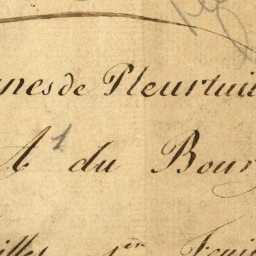 nes de Pleurtuit
A 1 du Bourg
illes 1ère Feuil